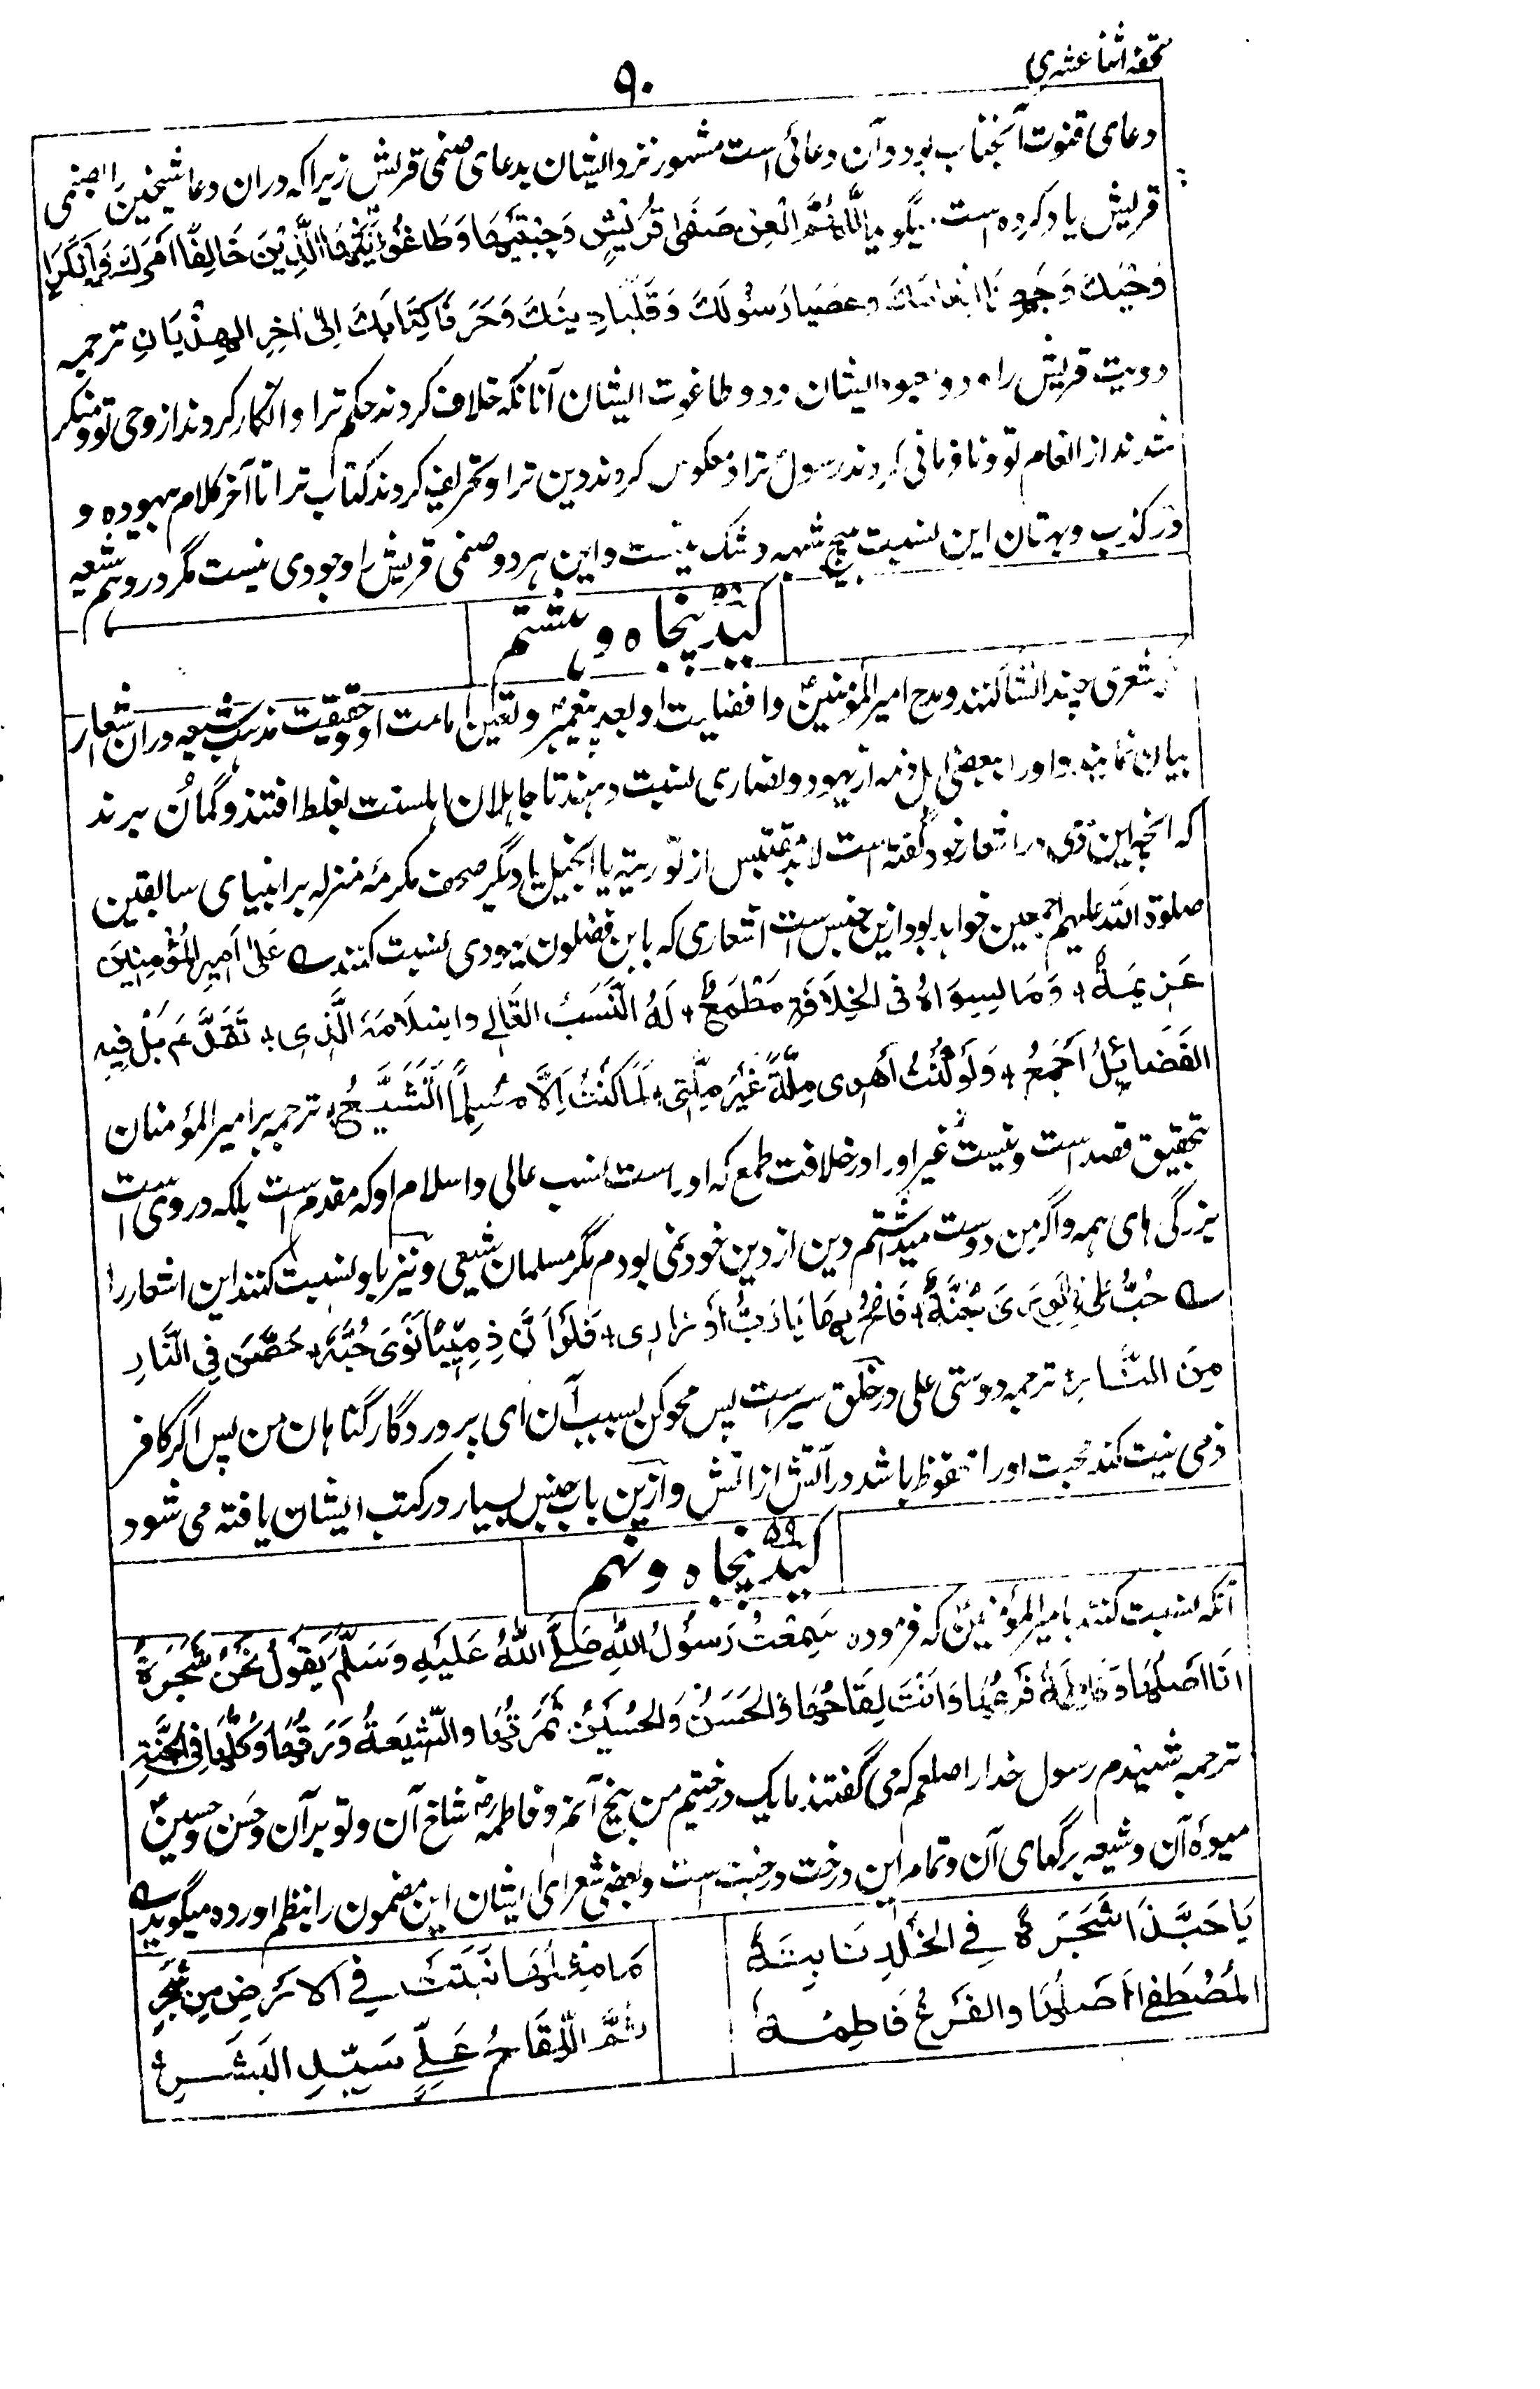 تحفه اثنا عشري
۹۰
دعای قنوت آنجناب بود و آن دعائی است مشهور نزد ایشان بدعای صنمی قریش زیرا که دران دعا شیخین را بصنمی
قریش یاد کرده است میگوید اَللّٰهُمَّ الْعَنْ صَنَمَیْ قُرَیْشٍ وَجِبْتَیْهَا وَطَاغُوْتَیْهَا الَّذِیْنَ خَالَفَا اَمْرَكَ وَاَنْكَرَا
وَحْیَكَ وَجَحَدَا اِنْعَامَكَ وَعَصَیَا رَسُوْلَكَ وَقَلَبَا دِیْنَكَ وَحَرَّفَا كِتَابَكَ اِلٰی اٰخِرِ الْهِذْیَانِ ترجمه
دو بت قریش را و دو ایشان و دو طاغوت ایشان آنانکه خلاف کردند حکم ترا و انکار کردند از وحی تو و منکر
شدند از انعام تو و نافرمانی کردند رسول ترا و معکوس کردند دین ترا و تحریف کردند کتاب ترا تا آخر کلام بیهوده و
در کذب و بهتان این نسبت هیچ شبهه و شک نیست و این هر دو صنمی قریش را وجودی نیست مگر در وهم شیعه
کید پنجاه و هشتم ۵۸
شعری چند انشا کنند و مدح امیر المؤمنین و افضلیت او بعد پیغمبر و تعین امامت او و حقیقت مذهب شیعه دران اشعار
بیان نمایند و او را ببعضی اهل ذمه از یهود و نصاری نسبت دهند تا جاهلان اهلسنت بغلط افتند و گمان برند
که آنچه این ذمی در اشعار خود گفته است لابد مقتبس از توریة یا انجیل یا دیگر صحف مکرمه منزله بر انبیای سابقین
صلوة الله علیهم اجمعین خواهد بود ازین جنس است اشعاری که بابن فضلون یهودی نسبت کنند عَلٰی اَمِیْرِ الْمُؤْمِنِیْنَ
عَزِیْمَةٌ وَمَا لِسِوَاهُ فِی الْخِلَافَةِ مَطْمَعٌ لَهُ النَّسَبُ الْعَالِی وَاِسْلَامُهُ الَّذِی تَقَدَّمَ بَلْ فِیْهِ
الفَضَائِلُ اَجْمَعُ وَلَوْ كُنْتُ اَهْوٰی مِلَّةً غَیْرَ مِلَّتِی لَمَا كُنْتُ اِلَّا مُسْلِمًا اَتَشَیَّعُ ترجمه بر امیر المؤمنان
بتحقیق قصد است و نیست غیر او را در خلافت طمع که او راست نسب عالی و اسلام او که مقدم است بلکه در وی است
بزرگی های همه و اگر من دوست میداشتم دین از دین خود نمی بودم مگر مسلمان شیعی و نیز باو نسبت کنند این اشعار را
حُبُّ عَلِیٍّ فِی الْوَرٰی جُنَّةٌ فَامْحُ بِهَا یَا رَبِّ اَوْزَارِی فَلَوْ اَنَّ ذِمِّیًّا نَوٰی حُبَّهُ حُصِّنَ فِی النَّارِ
مِنَ النَّارِ ترجمه دوستی علی در خلق سپرست پس محو کن بسبب آن ای پروردگار گناهان من پس اگر کافر
ذمی نیت کند محبت او را محفوظ باشد در آتش از آتش و ازین باب جنس بسیار در کتب ایشان یافته می شود
کید پنجاه و نهم ۵۹
آنکه نسبت کنند بامیر المؤمنین که فرموده سَمِعْتُ رَسُوْلَ اللهِ صَلَّی اللهُ عَلَیْهِ وَسَلَّمَ یَقُوْلُ نَحْنُ شَجَرَةٌ
اَنَا اَصْلُهَا وَفَاطِمَةُ فَرْعُهَا وَاَنْتَ لِقَاحُهَا وَالْحَسَنُ وَالْحُسَیْنُ ثَمَرَتُهَا وَالشِّیْعَةُ وَرَقُهَا وَكُلُّهَا فِی الْجَنَّةِ
ترجمه شنیدم رسول خدا را صلعم که می گفتند ما یک درختیم من بیخ آنم و فاطمه شاخ آن و تو بر آن و حسن و حسین
میوه آن و شیعه برگهای آن و تمام این درخت در جنت است و بعضی شعرای ایشان این مضمون را بنظم آورده میگوید
یَا حَبَّذَا شَجَرَةٌ فِی الْخُلْدِ نَابِتَةٌ مَا مِثْلُهَا نَبَتَتْ فِی الْاَرْضِ مِنْ شَجَرِ
المُصْطَفٰی اَصْلُهَا وَالفَرْعُ فَاطِمَةٌ ثُمَّ اللِّقَاحُ عَلِیٌّ سَیِّدُ الْبَشَرِ